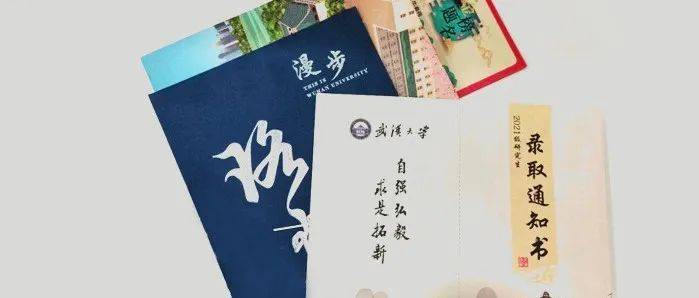 漫步
THIS IS
WUHAN UNIVERSITY
珞
武汉大学
自强弘毅
求是拓新
2021级研究生
录取通知书